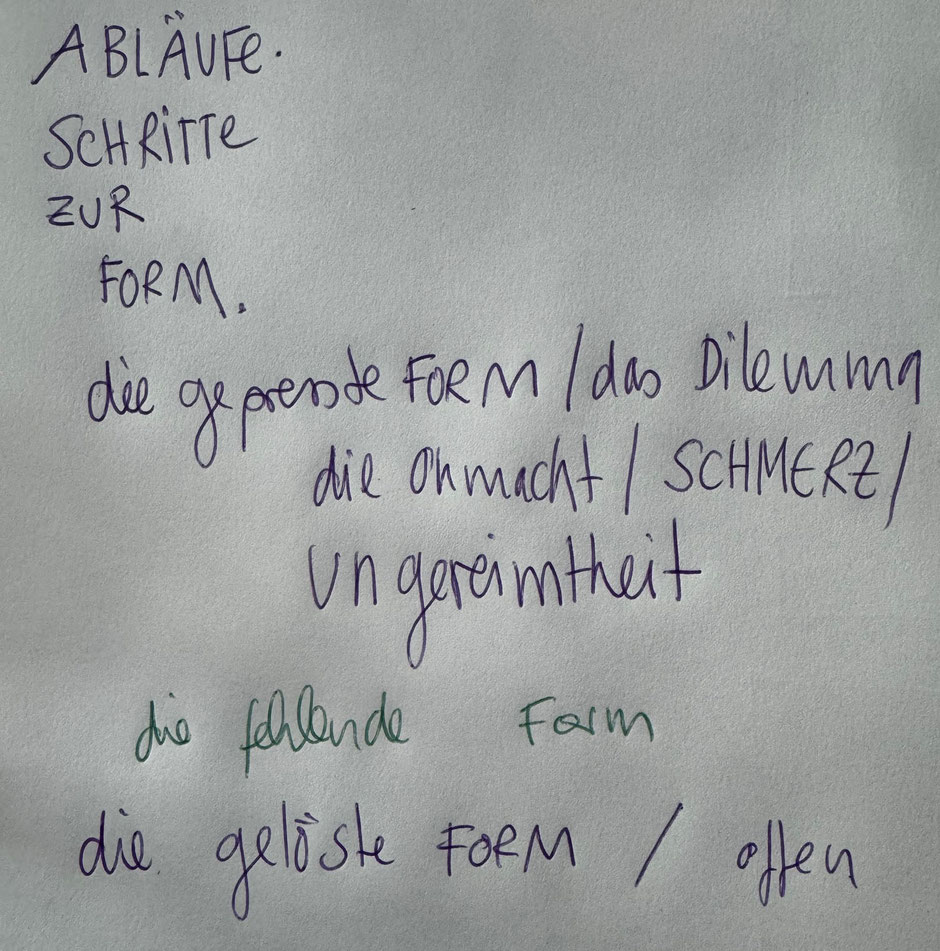 ABLÄUFe.
SCHRiTTe
ZUR
FORM.
die gepresste FORM / das Dilemma
die Ohnmacht / SCHMERZ /
Ungereimtheit
die fehlende Form
die gelöste FORM / offen